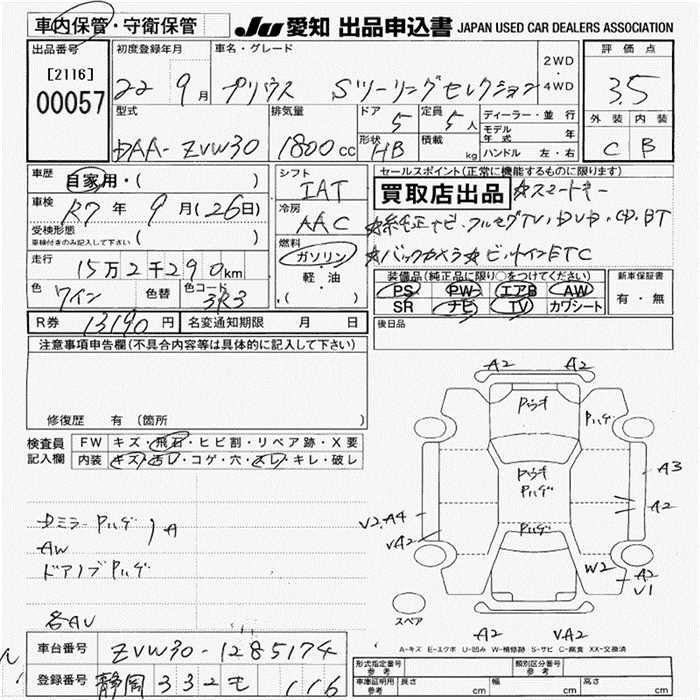 車内保管・守衛保管
JU 愛知 出品申込書 JAPAN USED CAR DEALERS ASSOCIATION
出品番号 初度登録年月 車名・グレード 評価点
[2116]
00057
22 9月 プリウス Sツーリングセレクション 2WD 4WD 3.5
型式 排気量 ドア 定員 ディーラー・並行 外装 内装
DAA-ZVW30 1800cc 5 5人 モデル年式 年 C B
形状 HB 積載 kg ハンドル 左・右
車歴 自家用・( )
シフト IAT
セールスポイント(正常に機能するものに限ります)
車検 R7年 9月(26日)
冷房 AAC
買取店出品 ☆スマートキー
受検形態 車検付きのみ記入して下さい ( )
☆純正ナビ・フルセグTV,DVD,CD,BT
燃料 ガソリン・軽・油・( )
☆バックカメラ☆ビルトインETC
走行 15万2千290km
装備品(純正品に限り○をつけてください) 新車保証書
PS PW エアB AW 有・無
色 ワイン 色替 色コード 3R3
SR ナビ TV カワシート
R券 13190円 名変通知期限 月 日
後日品
注意事項申告欄(不具合内容等は具体的に記入して下さい)
修復歴 有 (箇所 )
検査員記入欄 FW キズ・飛石・ヒビ割・リペア跡・X要
内装 キズ・汚レ・コゲ・穴・スレ・キレ・破レ
A2 A2
Pハゲ
Pハゲ
Pハゲ
A3
A2
V2.A4
VA2
W2
A2
V1
A2 VA2
スペア
DミラーPハゲ
A
AW
ドアノブPハゲ
各AU
A-キズ E-エクボ U-凹み W-補修跡 S-サビ C-腐食 XX-交換済
車台番号 ZVW30-1285174
登録番号 静岡 332 モ 116
形式指定番号 参考 類別区分番号 参考
車庫証明用 参考 長さ cm 幅 cm 高さ cm